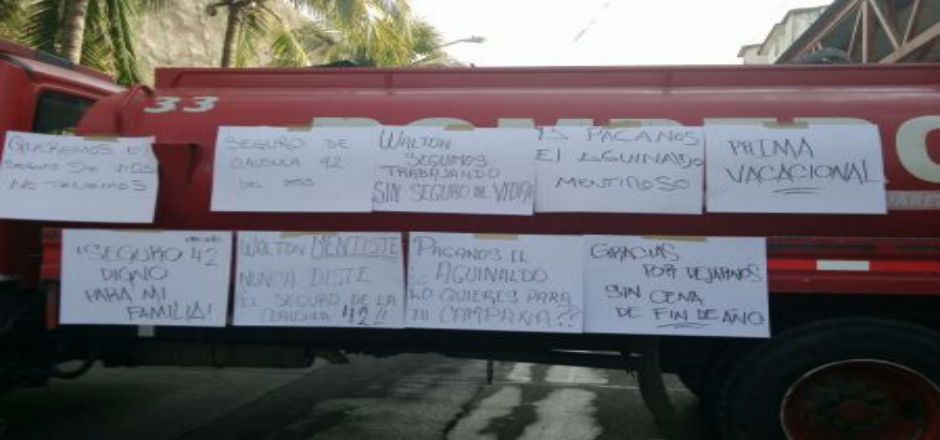 33
BOMBERO
QUEREMOS EL
SEGURO DE VIDA
NO TENEMOS
SEGURO DE
CLAUSULA 42
WALTON
SEGUIMOS
TRABAJANDO
SIN SEGURO DE VIDA
PAGANOS
El AGUINALDO
MENTIROSO
PRIMA
VACACIONAL
¡SEGURO 42
DIGNO
PARA MI
FAMILIA!
WALTON MENTISTE
NUNCA DISTE
EL SEGURO DE LA
CLAUSULA 42!!
PAGANOS EL
AGUINALDO
LO QUIERES PARA
TU CAMPAÑA??
GRACIAS
POR DEJARNOS
SIN CENA
DE FIN DE AÑO